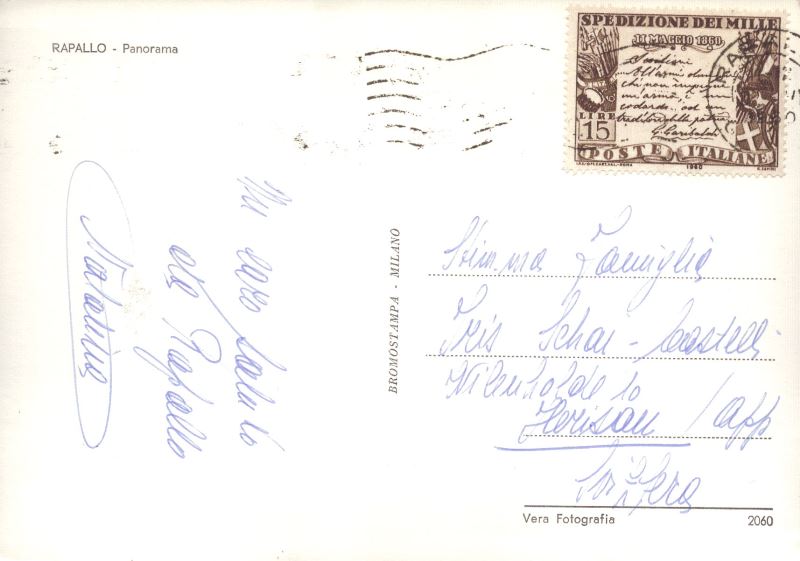 RAPALLO - Panorama
SPEDIZIONE DEI MILLE
11 MAGGIO 1860
G. Garibaldi
LIRE
15
POSTE ITALIANE
1960
Un caro saluto
da Rapallo
BROMOSTAMPA - MILANO
Stim.ma Famiglia
Iris Schar - Castelli
10
Herisau / App
Svizzera
Vera Fotografia
2060